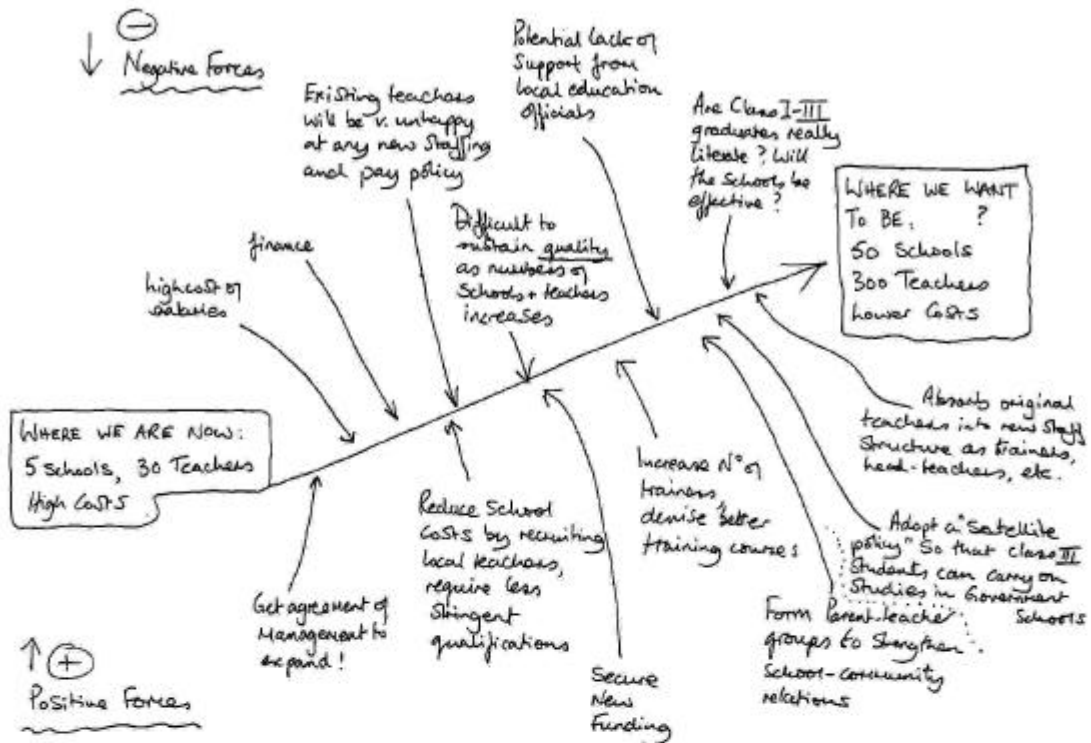 ⊖
Negative Forces
Existing teachers
will be v. unhappy
at any new Staffing
and pay policy
Potential Lack of
Support from
local education
officials
Are Class I-III
graduates really
literate? Will
the schools be
effective?
WHERE WE WANT
TO BE. ?
50 Schools
300 Teachers
Lower Costs
finance
Difficult to
sustain quality
as numbers of
Schools + teachers
increases
high cost of
salaries
WHERE WE ARE NOW:
5 Schools, 30 Teachers
High Costs
Get agreement of
Management to
expand!
Reduce School
Costs by recruiting
local teachers,
require less
Stringent
qualifications
Secure
New
Funding
Increase Nº of
trainers,
devise better
training courses
Form Parent-teacher
groups to Strengthen
School-community
relations
Adopt a "Satellite
policy" So that class III
Students can carry on
Studies in Government
Schools
Absorb original
teachers into new Staff
Structure as trainers,
head-teachers, etc.
⊕
Positive Forces